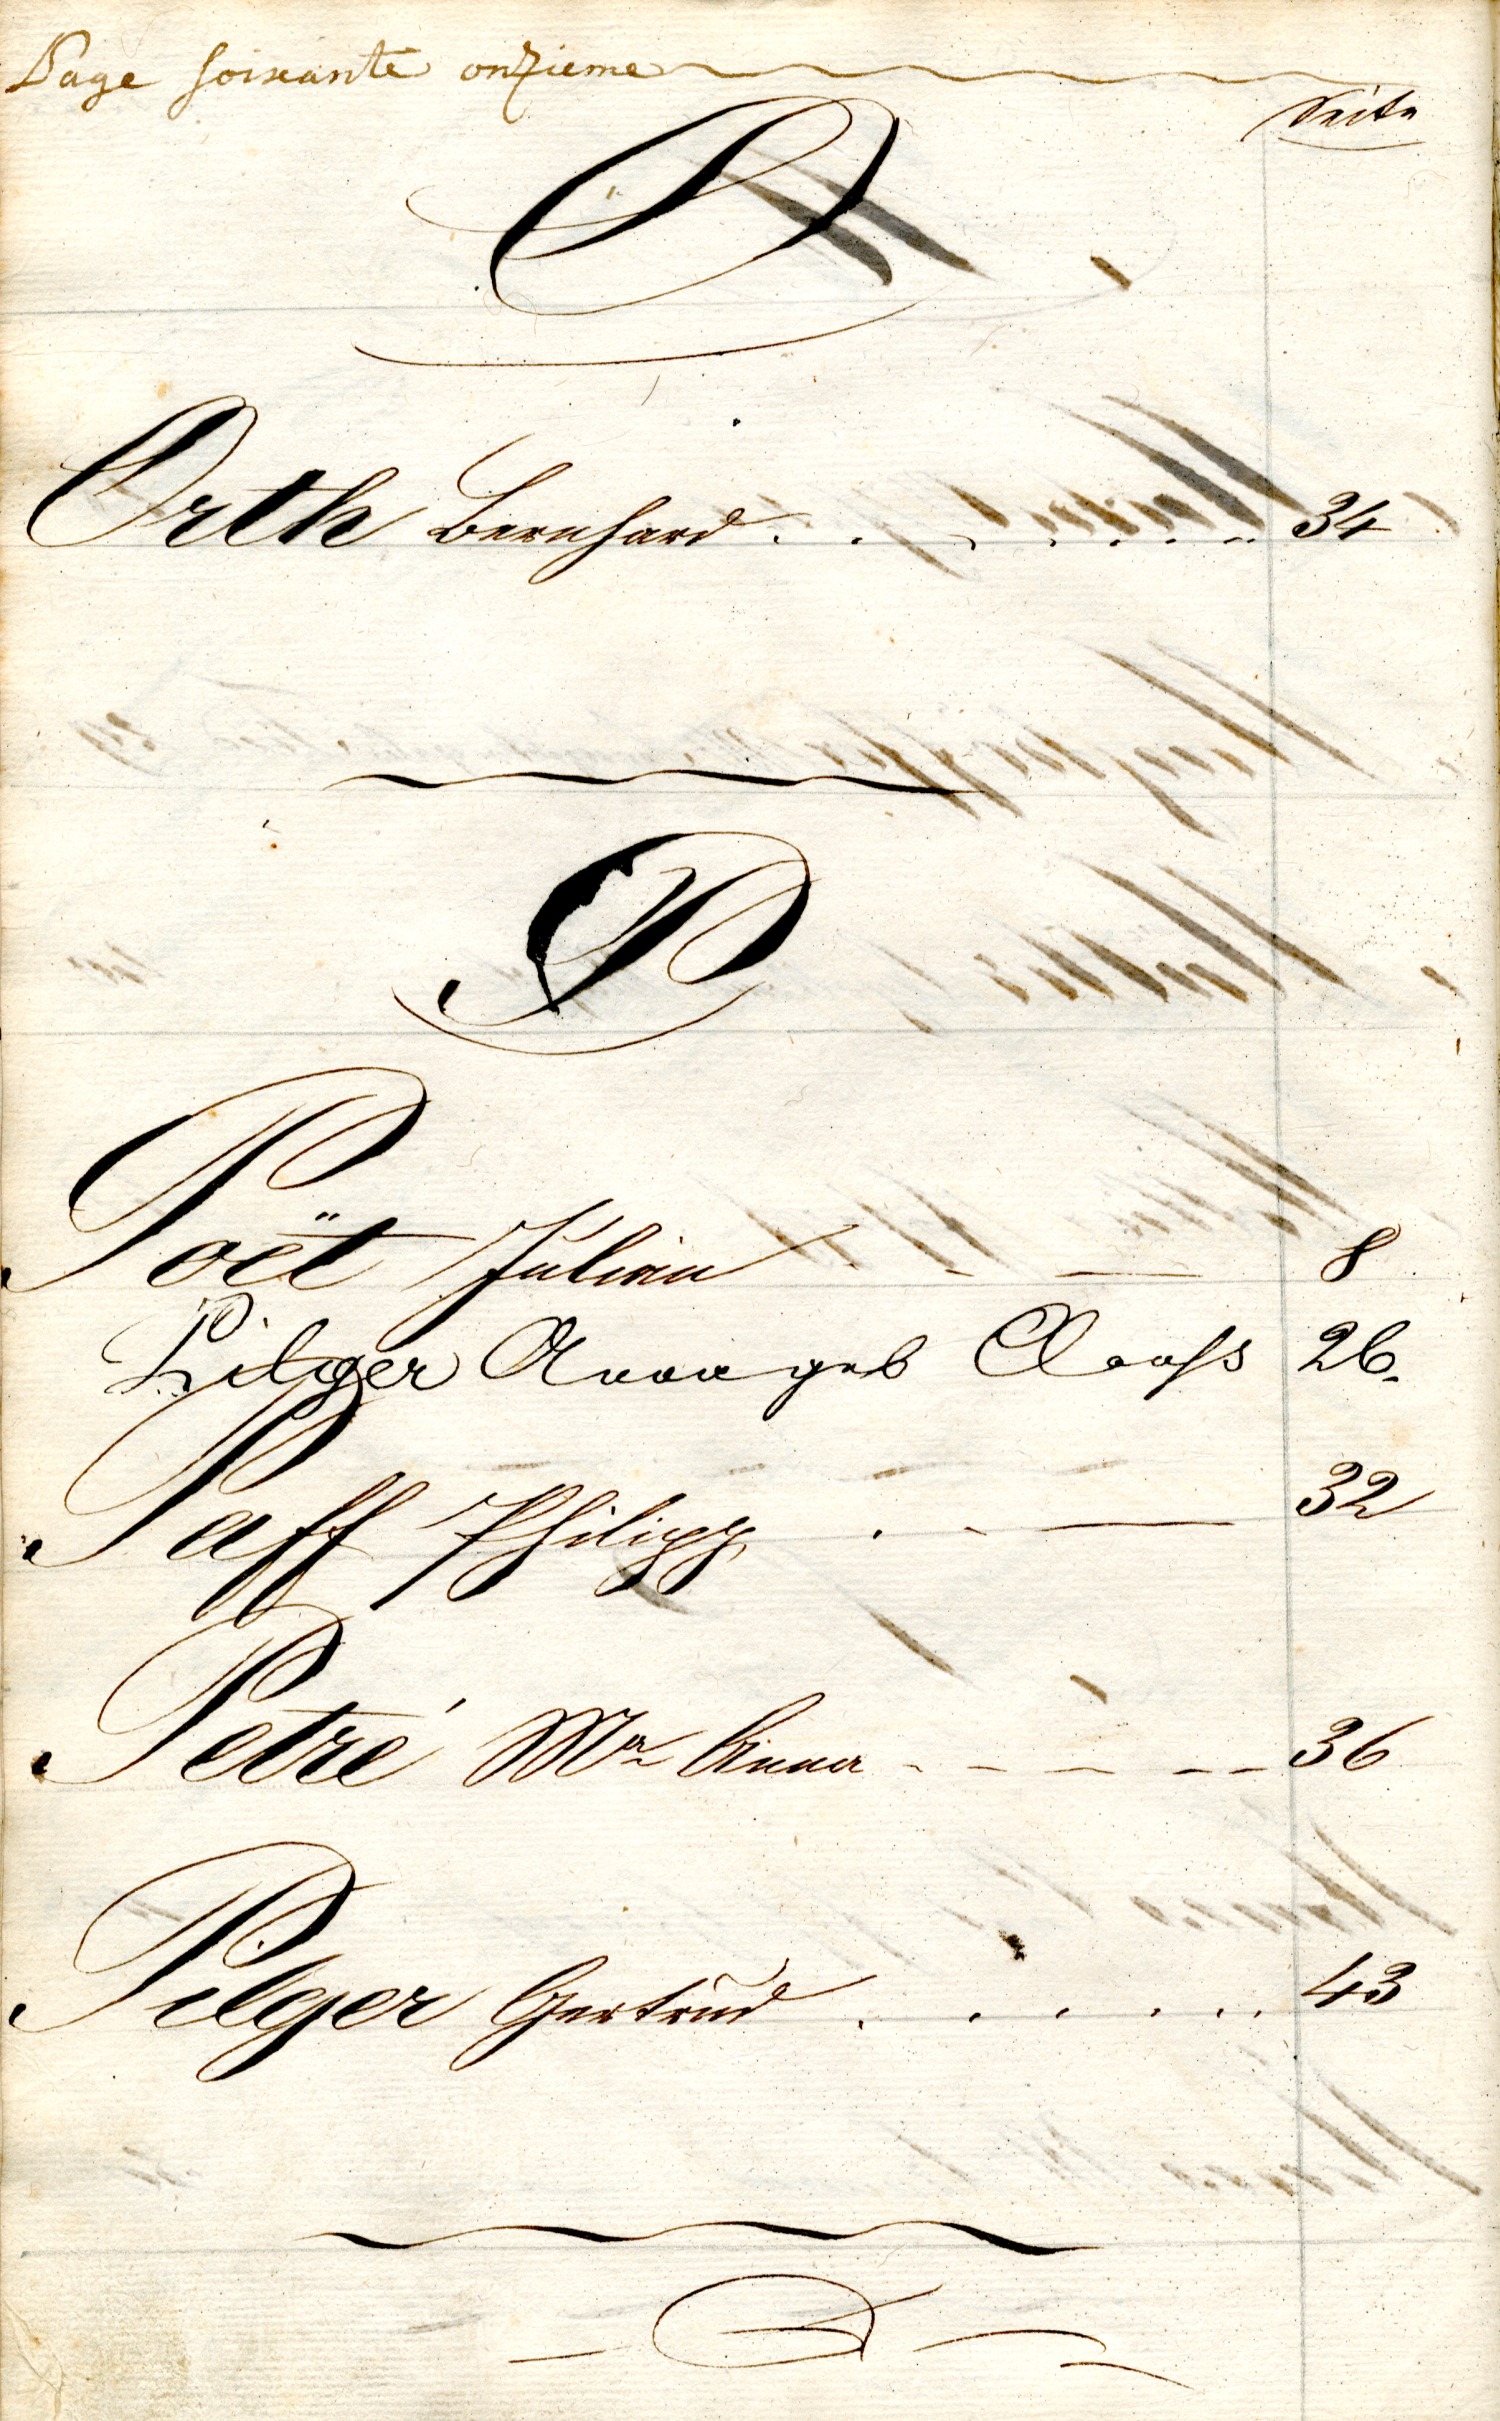 Page soixante onzieme
Seite
O
Orth Bernhard 34
P
Poët Julian 8
Pilger Anna geb Claass 26.
Paff Philipp 32
Petré Ma Anna 36
Pilger Gertrud 43